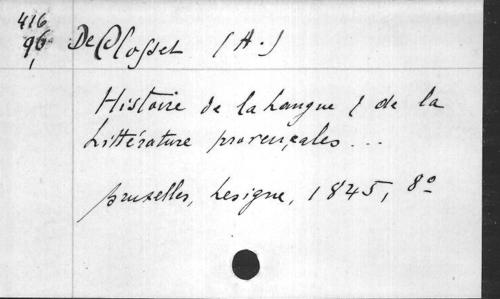 416
96
1
De Closset (A.)
Histoire de la Langue & de la
Littérature provençales ...
Bruxelles, Lesigne, 1845, 8º